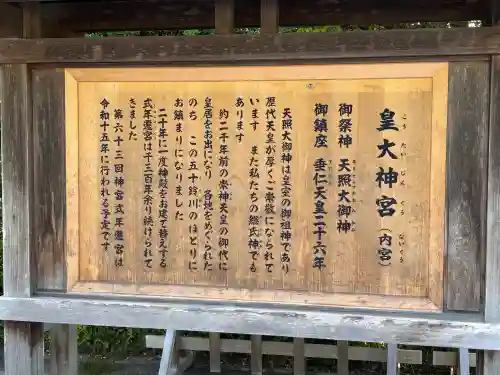 皇大神宮（内宮）
こう たい じん ぐう ないくう
御祭神　天照大御神
御鎮座　垂仁天皇二十六年
天照大御神は皇室の御祖神であり
歴代天皇が厚くご崇敬になられて
います　また私たちの総氏神でも
あります
約二千年前の崇神天皇の御代に
皇居をお出になり　各地をめぐられた
のち　この五十鈴川のほとりに
お鎮まりになりました
二十年に一度神殿をお建て替えする
式年遷宮は千三百年余り続けられて
きました
第六十三回神宮式年遷宮は
令和十五年に行われる予定です